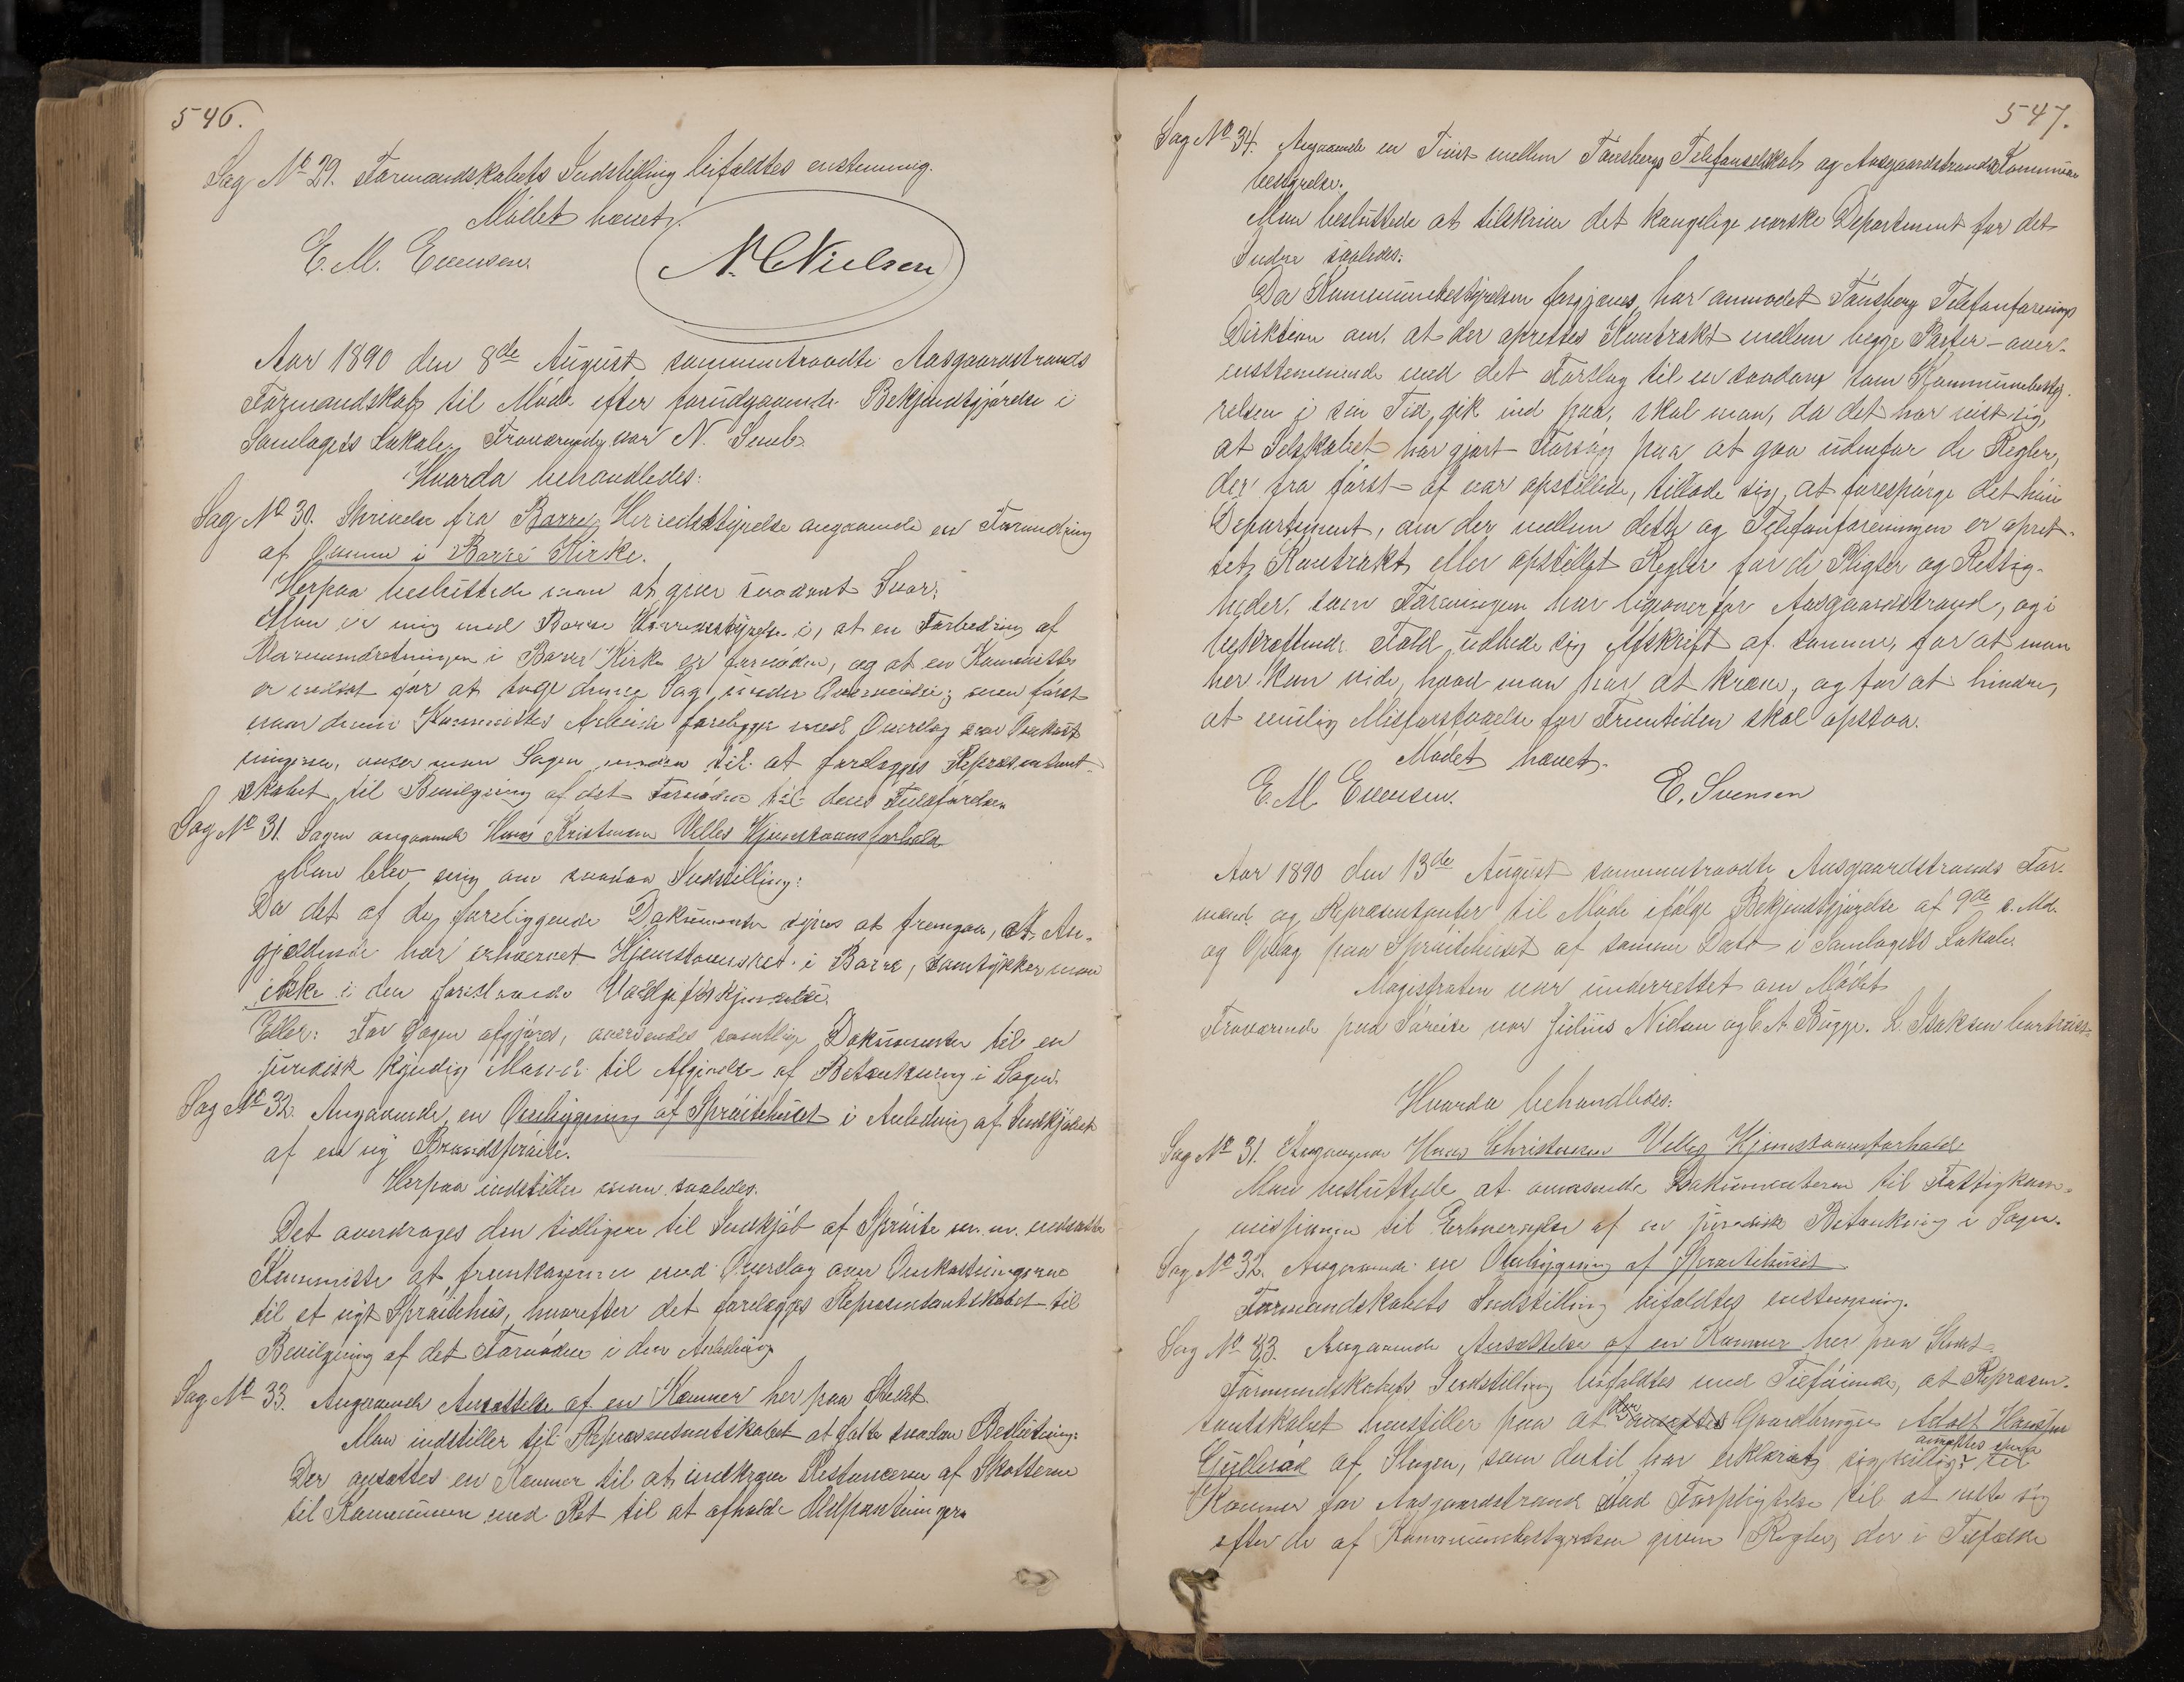 546.
Sag No 29. Formandskabets Indstilling bifaldtes enstemmig.
Mødet hævet.
E. M. Evensen. N. Nielsen
Aar 1890 den 8de August sammentraadte Aasgaardstrands
Formandskab til Møde efter forudgaaende Bekjendtgjørelse i
Samlagets Lokale. Fraværende var N. Semb.
Hvorda behandledes:
Sag No 30. Skrivelse fra Borre Herredsstyrelse angaaende en Forandring
af Ovnene i Borre Kirke.
Herpaa besluttede man at give saadant Svar:
Man er enig med Borre Herredsstyrelse i, at en Forbedring af
Varmeindretningen i Borre Kirke er fornøden, og at en Kommitte
er nedsat for at tage denne Sag under Overveielse; men først
naar denne Kommittes Arbeide foreligger med Overslag over Omkost
ningerne, anser man Sagen moden til at forelægges Repræsentant-
skabet til Bevilgning af det Fornødne til dens Fuldførelse.
Sag No 31. Sagen angaaende Hans Kristensen Velles Hjemstavnsforhold
Man blev enig om saadan Indstilling:
Da det af de foreliggende Dokumenter synes at fremgaa, at An-
gjældende har erhvervet Hjemstavnsret i Borre, samtykker man
ikke i den foreslaaede Voldgiftskjendelse.
Eller: Før Sagen afgjøres, oversendes samtlige Dokumenter til en
juridisk kyndig Mand til Afgivelse af Betænkning i Sagen.
Sag No 32. Angaaende en Ombygning af Sprøitehuset i Anledning af Indkjøbet
af en ny Brandsprøite.
Herpaa indstiller man saaledes.
Det overdrages den tidligere til Indkjøb af Sprøite m. m. nedsatte
Kommitte at fremkomme med Overslag over Omkostningerne
til et nyt Sprøitehus, hvorefter det forelægges Repræsentantskabet til
Bevilgning af det Fornødne i den Anledning
Sag No 33. Angaaende Ansættelse af en Kæmner her paa Stedet.
Man indstiller til Repræsentantskabet at fatte saadan Beslutning:
Der ansættes en Kæmner til at indkræve Restancerne af Skatterne
til Kommunen med Ret til at afholde Udpantninger.
547.
Sag No 34. Angaaende en Tvist mellem Tønsbergs Telefonselskab og Aasgaardstrands Kommune
bestyrelse.
Man besluttede at tilskrive det kongelige norske Departement for det
Indre saaledes:
Da Kommunebestyrelsen forgjæves har anmodet Tønsberg Telefonforenings
Direktion om, at der oprettes Kontrakt mellem begge Parter – over-
ensstemmende med det Forslag til en saadan som Kommunebesty-
relsen i sin Tid gik ind paa, skal man, da det har vist sig,
at Selskabet har gjort Forsøg paa at gaa udenfor de Regler,
der fra først af var opstillede, tillade sig at forespørge det høie
Departement, om der mellem dette og Telefonforeningen er opret-
tet Kontrakt eller opstillet Regler for de Pligter og Rettig-
heder, som Foreningen har ligeoverfor Aasgaardstrand, og i
bekræftende Fald udbede sig Afskrift af samme, for at man
her kan vide, hvad man har at kræve, og for at hindre,
at mulig Misforstaaelse for Fremtiden skal opstaa.
Mødet hævet.
E. M. Evensen. E. Svensen
Aar 1890 den 13de August sammentraadte Aasgaardstrands For-
mænd og Repræsentanter til Møde ifølge Bekjendtgjørelse af 9de d. Md.
og Opslag paa Sprøitehuset af samme Dato i Samlagets Lokale
Magistraten var underrettet om Mødet
Fraværende paa Søreise var Julius Nielsen og C. A. Bugge. L. Isaksen bortreist.
Hvorda behandledes:
Sag No 31. Angaaende Hans Christensen Velles Hjemstavnsforholde
Man besluttede at oversende Dokumenterne til Fattigkom-
missionen til Erhvervelse af en juridisk Betænkning i Sagen.
Sag No 32. Angaaende en Ombygning af Sprøitehuset.
Formandskabets Indstilling bifaldtes enstemmig.
Sag No 33. Angaaende Ansættelse af en Kæmner her paa Stedet.
Formandskabets Indstilling bifaldtes med Tilføiende, at Repræsen-
tantskabet henstiller paa at Gaardbruger Adolf Hansen
Gulleråd af Slagen, som dertil har erklæret sig villig
ansættes som
Kæmner for Aasgaardstrand med Forpligtelse til at rette sig
efter de af Kommunebestyrelsen givne Regler, der i Tilfælde